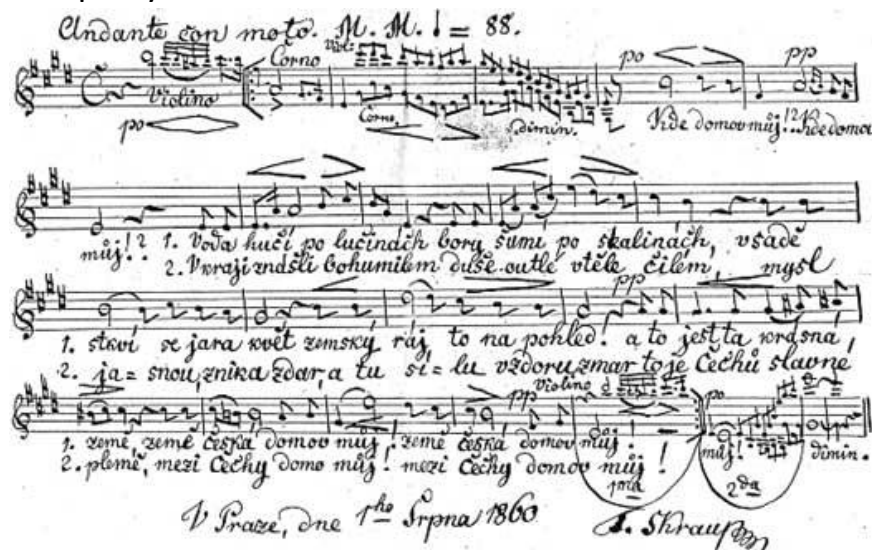 Andante con moto. M. M. ♩ = 88.
Viol:
Corno
po
pp
Violino
po
Corno
dimin.
Kde domov můj!? Kde domov
můj!? 1. Voda hučí po lučinách bory šumí po skalinách, všadě
2. V kraji znášli bohumilém duše outlé v těle čilém, mysl
pp
1. stkví se jara květ zemský ráj to na pohled! a to jest ta krásná,
2. ja=snou, znika zdar, a tu sí=lu vzdoru, zmar to je Čechů slavné,
pp
Violino
po
1. země, země česká domov můj! země česká domov můj!
můj!
dimin.
2. plémě, mezi Čechy domo můj! mezi Čechy domov můj!
1ma
2da
V Praze, dne 1ho Srpna 1860
F. Skraup